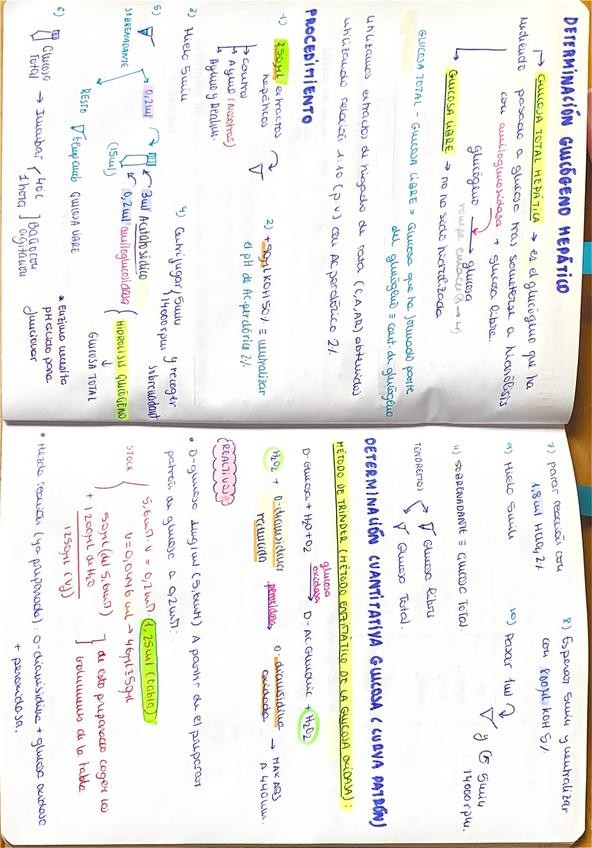 DETERMINACIÓN GLUCÓGENO HEPÁTICO
GLUCOSA TOTAL HEPÁTICA → es el glucógeno que ha
pasado a glucosa tras someterse a hidrólisis
con amiloglucosidasa + glucosa libre.
glucógeno → glucosa
rompe enlaces
GLUCOSA LIBRE → no ha sido hidrolizada
GLUCOSA TOTAL - GLUCOSA LIBRE = Glucosa que ha formado parte
del glucógeno ≡ cant. de glucógeno
Utilizamos extracto de hígado de rata (C, A, AR) obtenidos
utilizando relación 1:10 (p:v) con Ac. perclórico 2%
PROCEDIMIENTO
1) 250 µl extractos
hepáticos
→ Control
→ Ayuno (nosotras)
Ayuno y Realim.
2) + KOH 50% ≡ neutralizar
el pH de Ac. perclórico 2%
3) Hielo 5 min
4) Centrifugar 5 min
14000 rpm y recoger
sobrenadante
5)
SOBRENADANTE
0,2 ml
(15 ml)
3 ml Acetato sódico
0,2 ml amiloglucosidasa
HIDRÓLISIS GLUCÓGENO
GLUCOSA TOTAL
RESTO
GLUCOSA LIBRE
6) Glucosa
Total → Incubar 40ºC
1 hora
Baño con
agitación
* Enzima necesita
pH ácido para
funcionar
7) Parar reacción con
1,8 ml HClO4 2%
8) Esperar 5 min y neutralizar
con 800 µl KOH 5%
9) Hielo 5 min
10) Pasar 1 ml
y C 5 min
14000 rpm.
11) SOBRENADANTE ≡ GLUCOSA TOTAL
TENDREMOS
Glucosa libre
Glucosa Total.
DETERMINACIÓN CUANTITATIVA GLUCOSA (CURVA PATRÓN)
MÉTODO DE TRINDER (MÉTODO ENZIMÁTICO DE LA GLUCOSA OXIDASA):
D-Glucosa + H2O + O2 → D-Ac Glucónic + H2O2
glucosa
oxidasa
H2O2 + O-dianisidina
reducida
peroxidasa
O-dianisidina
oxidada
→ MAX ABS
A 440 nm.
REACTIVOS
• D-glucosa 1mg/ml (5,6mM). A partir de el preparar
patrón de glucosa a 0,2mM:
STOCK
5,6mM · v = 0,2mM · 1,25ml (tabla)
v = 0,0446 ml → 45µl
(del 5,6mM)
+ 1200 µl de H2O
1250 µl (Vf)
de esto preparado coger los
volúmenes de la tabla
• Mezcla reacción (ya preparada): O-dianisidina + glucosa oxidasa
+ peroxidasa.